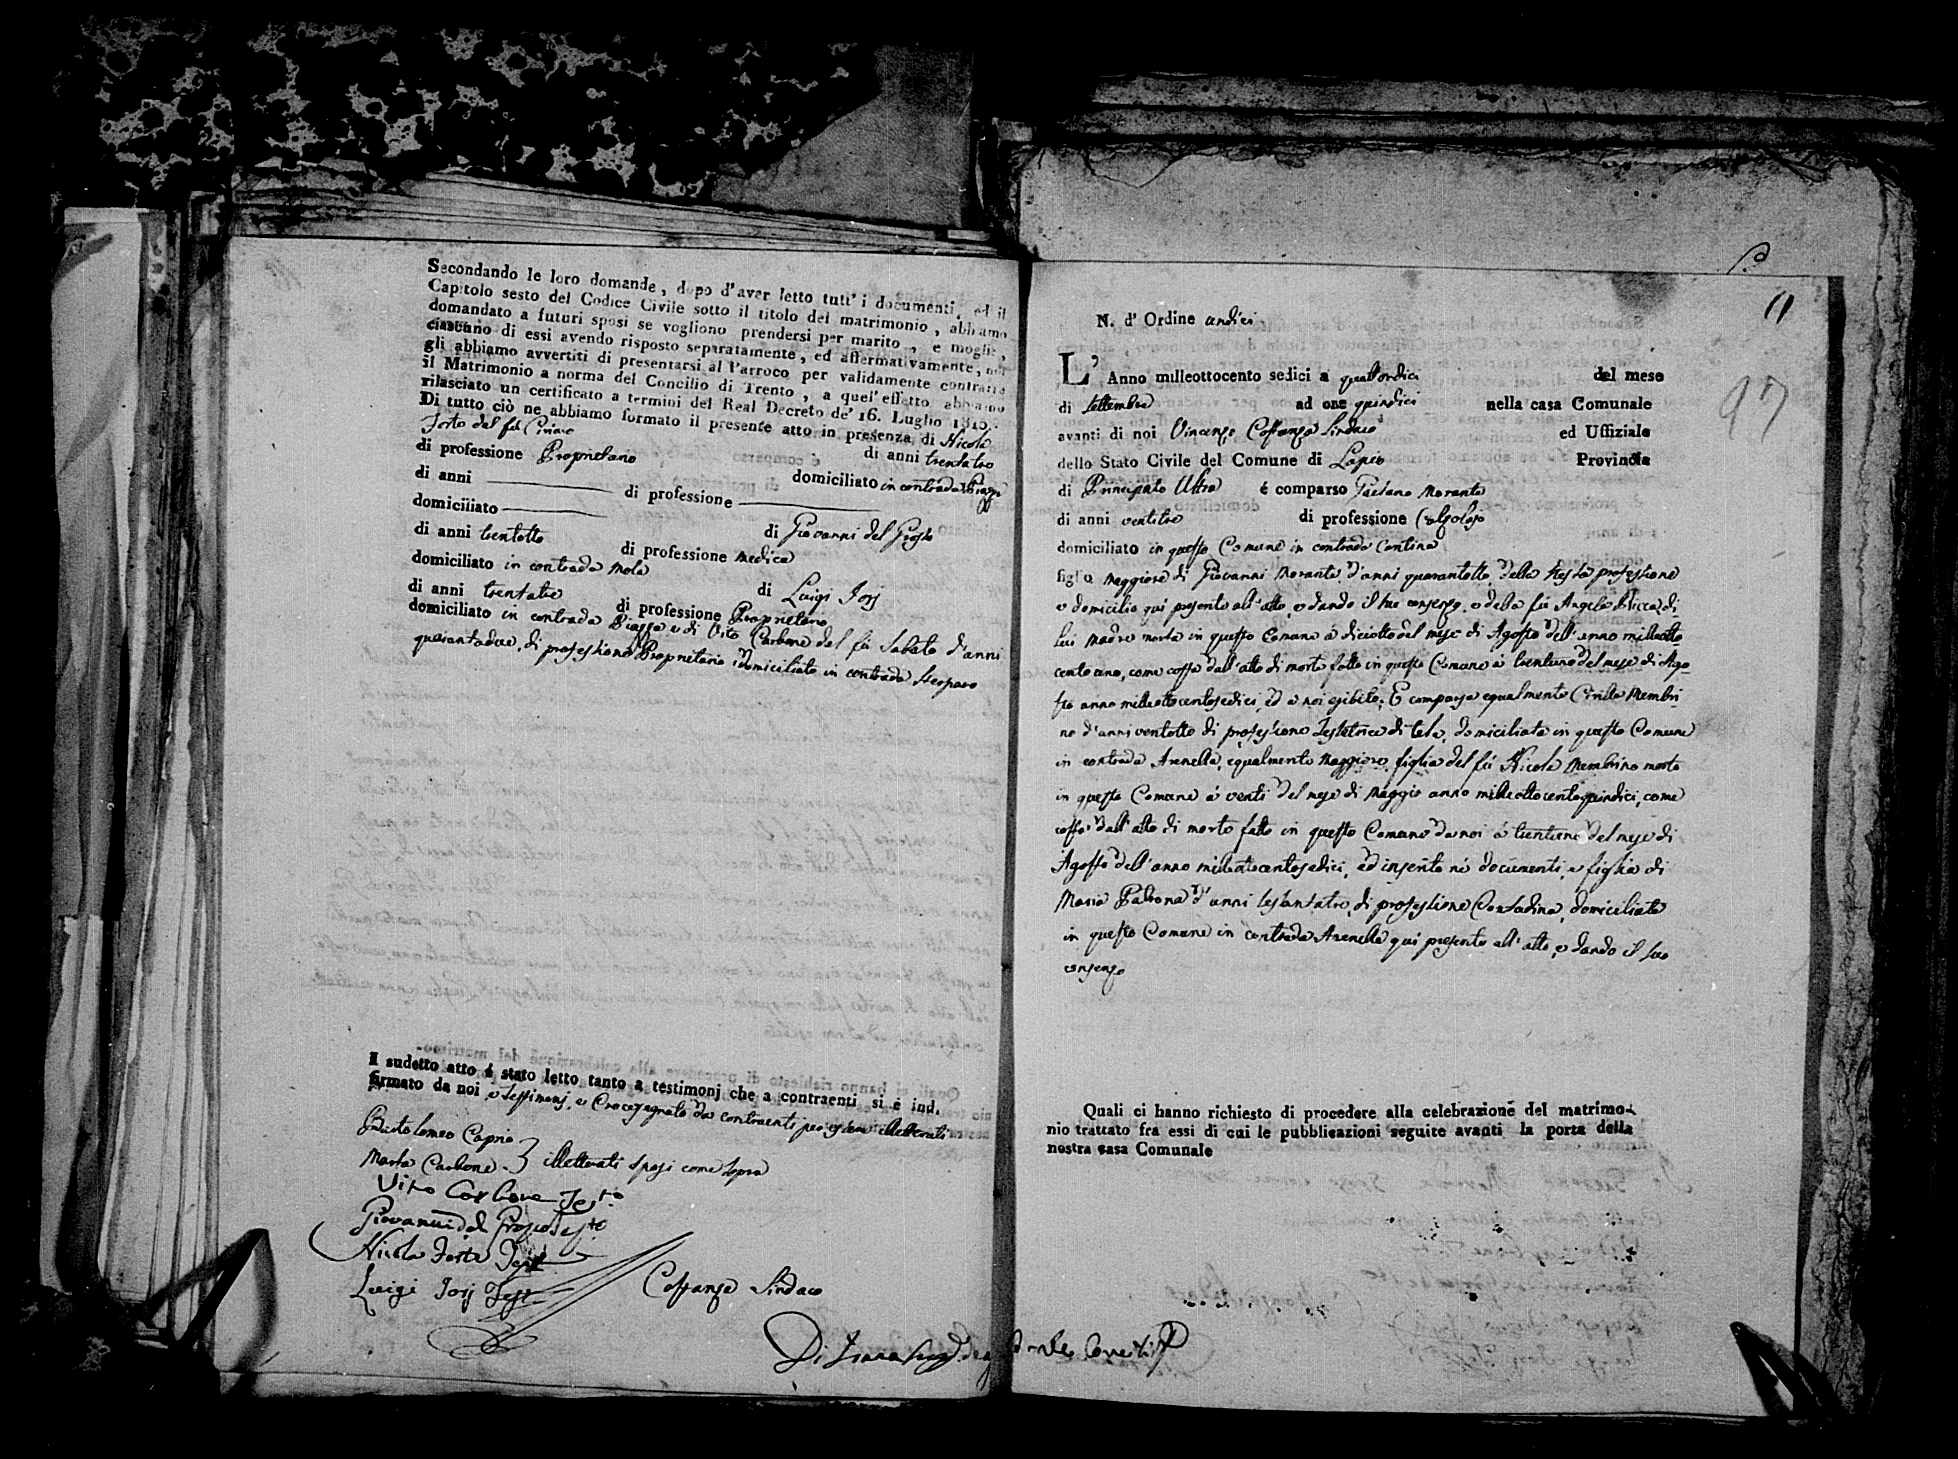 Secondando le loro domande, dopo d'aver letto tutt'i documenti, ed il
Capitolo sesto del Codice Civile sotto il titolo del matrimonio, abbiamo
domandato a futuri sposi se vogliono prendersi per marito, e moglie,
ciascuno di essi avendo risposto separatamente, ed affermativamente, noi
gli abbiamo avvertiti di presentarsi al Parroco per validamente contrarre
il Matrimonio a norma del Concilio di Trento, a quel'effetto abbiamo
rilasciato un certificato a termini del Real Decreto de' 16. Luglio 1815.
Di tutto ciò ne abbiamo formato il presente atto in presenza di Nicola
Forte del fù
di anni trentatre
di professione Proprietario
domiciliato in contrada Piazza
di anni
di professione
domiciliato
di Giovanni del Grosso
di anni trentotto
di professione Medico
domiciliato in contrada Mola
di Luigi Iorj
di anni trentatre
di professione Proprietario
domiciliato in contrada Piazza e di Vito Carbone del fù Sabato d'anni
quarantadue, di professione Proprietario domiciliato in contrada
Il sudetto atto é stato letto tanto a testimonj che a contraenti si é ind.
firmato da noi e Testimonj, e Crocesegnato da contraenti per essere illetterati
Bartolomeo Caprio
Marta Carbone } illetterati sposi come sopra
Vito Carbone Testo
Giovanni del Grosso Testo
Nicola Forte Test
Luigi Iorj Test
Costanza Sindaco
11
N. d' Ordine undici
97
L' Anno milleottocento sedici a quattordici del mese
di Settembre ad ore quindici nella casa Comunale
avanti di noi Vincenzo Costanza Sindaco ed Uffiziale
dello Stato Civile del Comune di Lapio Provincia
di Principato Ultra é comparso Gaetano Morante
di anni ventitre di professione Calzolajo
domiciliato in questo Comune in contrada Cantina
figlio Maggiore di Giovanni Morante d'anni quarantotto, della stessa professione
e domicilio qui presente all'atto, e dando il suo consenzo, e della fù Angela Ricca, di
lui Madre morta in questo Comune à diciotto del mese di Agosto dell'anno milleotto
cento uno, come costa dall'atto di morte fatto in questo Comune à trentuno del mese di Ago-
sto anno milleottocentosedici, ed a noi esibito. E comparsa egualmente Cirilla Membri-
no d'anni ventotto di professione Tessitrice di tela, domiciliata in questo Comune
in contrada Arenella, egualmente Maggiore, figlia del fù Nicola Membrino morto
in questo Comune à venti del mese di Maggio anno milleottocentoquindici, come
costa dall'atto di morte fatto in questo Comune da noi à trentuno del mese di
Agosto dell'anno milleottocentosedici, ed inserito nè documenti, e figlia di
Maria Padrona d'anni sessantatre, di professione Contadina, domiciliata
in questo Comune in contrada Arenella qui presente all'atto, e dando il suo
consenzo
Quali ci hanno richiesto di procedere alla celebrazione del matrimo-
nio trattato fra essi di cui le pubblicazioni seguite avanti la porta della
nostra casa Comunale